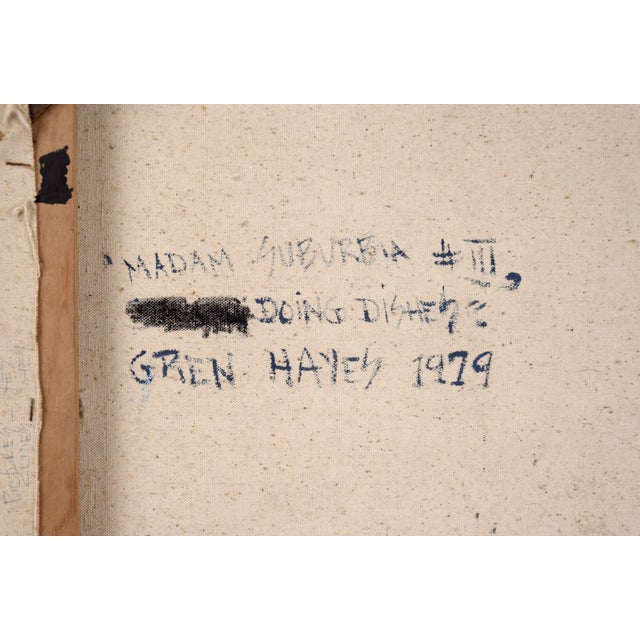 "MADAM SUBURBIA # III,
DOING DISHES"
GREN HAYES 1979